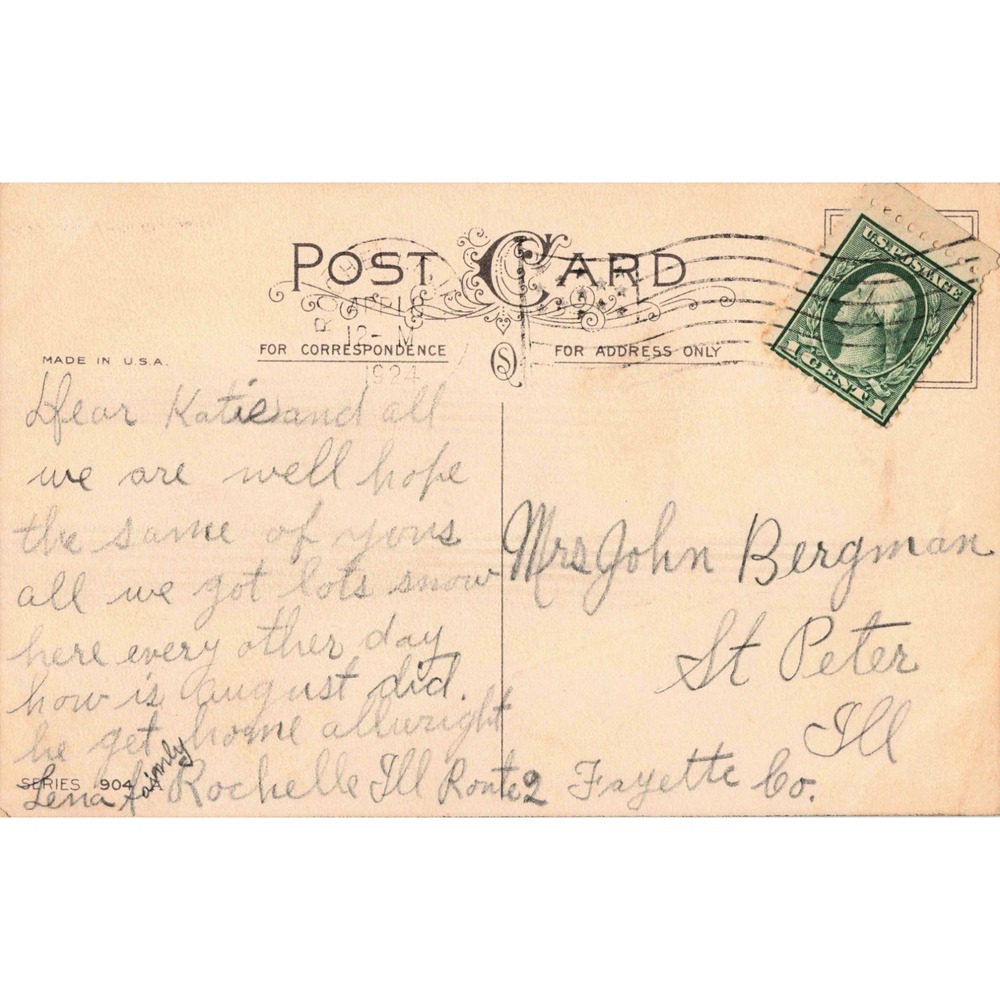 POST CARD
APR 18
12-M
1924
MADE IN U.S.A.
FOR CORRESPONDENCE
FOR ADDRESS ONLY
U.S. POSTAGE
1 CENT 1
Dear Katie and all
we are well hope
the same of yous
all we got lots snow
here every other day
how is august did.
he get home allwright
Lena & faimly Rochelle Ill Route 2
SERIES 904 A
Mrs John Bergman
St Peter
Ill
Fayette Co.